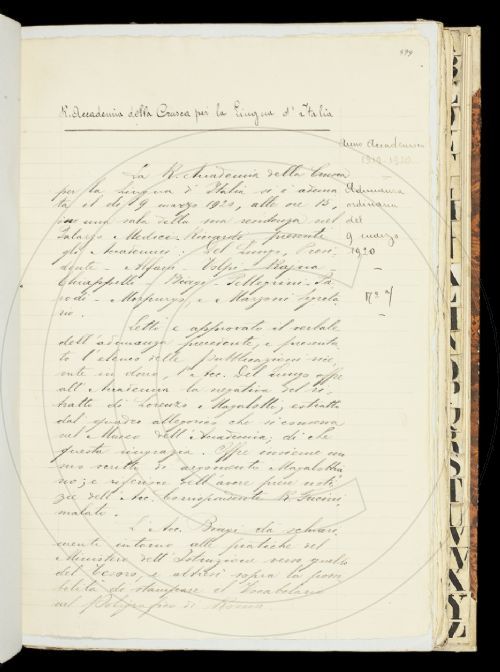 R. Accademia della Crusca per la Lingua d'Italia
Anno Accademico
1919-1920
Adunanza
ordinaria
del
9 marzo
1920
La R. Accademia della Crusca
per la Lingua d'Italia si è aduna
ta il dì 9 marzo 1920, alle ore 15,
in una sala della sua residenza nel
Palazzo Medici Riccardi, presenti
gli Accademici: Del Lungo, Presi
dente - Volpi - Rajna -
Chiappelli - Biagi - Pellegrini - Pa
rodi - Morpurgo e Mazzoni segreta
rio.
Letto e approvato il verbale
dell'adunanza precedente, e presenta
to l'elenco delle pubblicazioni
in dono, l'Acc. Del Lungo offre
all'Accademia la negativa del ri
tratto di Lorenzo Magalotti, estratta
dal quadro allegorico che si conserva
nel Museo dell'Accademia; di che
questa ringrazia. Offre insieme un
suo scritto di argomento Magalottia
no; e riferisce dell'avere prese noti
zie dell'Acc. corrispondente R. Fucini
malato.
L'Acc. Biagi dà schiari
menti intorno alle pratiche del
Ministro dell'Istruzione con quello
del Tesoro, e altresì sopra la possi
bilità di stampare il Vocabolario
nel Poligrafico di Roma.